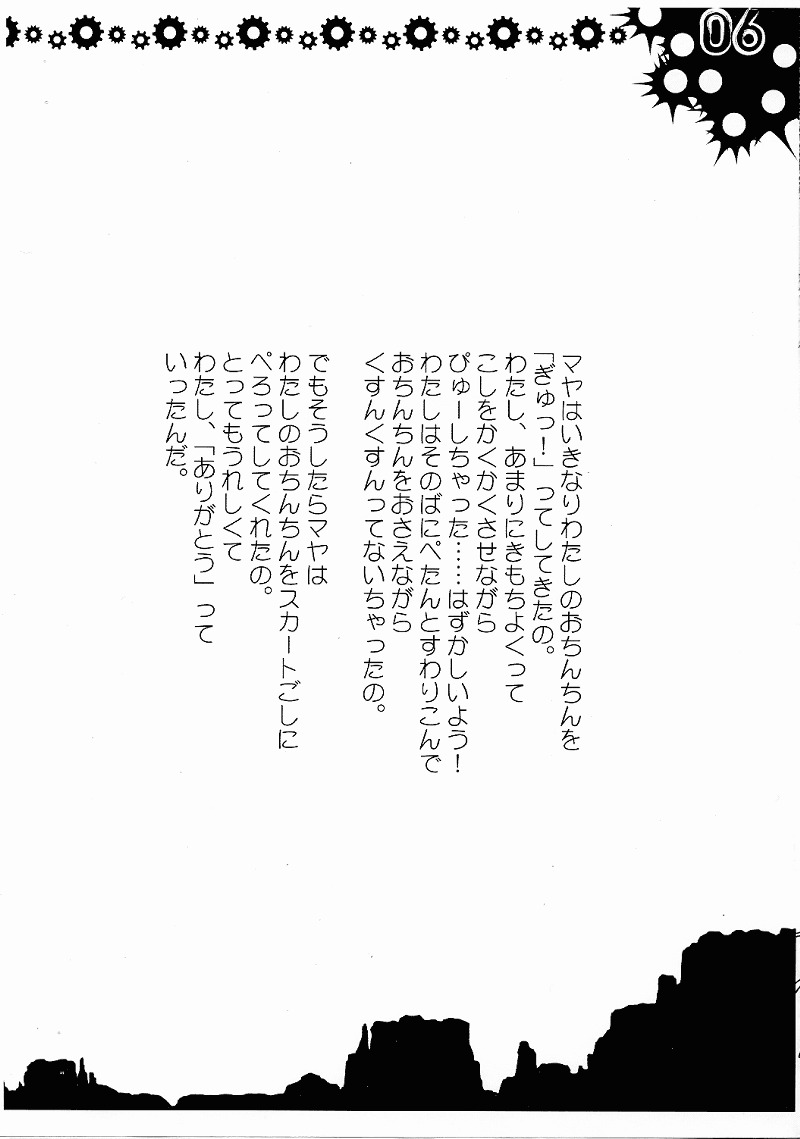 06
マヤはいきなりわたしのおちんちんを
「ぎゅっ!」ってしてきたの。
わたし、あまりにきもちよくって
こしをかくかくさせながら
ぴゅーしちゃった……はずかしいよう!
わたしはそのばにぺたんとすわりこんで
おちんちんをおさえながら
くすんくすんってないちゃったの。
でもそうしたらマヤは
わたしのおちんちんをスカートごしに
ぺろってしてくれたの。
とってもうれしくて
わたし、「ありがとう」って
いったんだ。